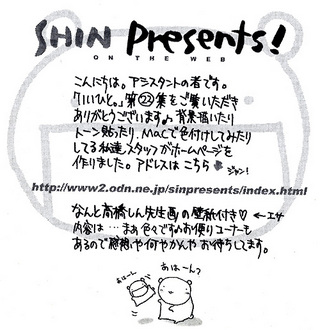 SHIN Presents!
ON THE WEB
こんにちは。アシスタントの者です。
「いいひと。」第㉒集をご覧いただき
ありがとうございます♪背景描いたり
トーン貼ったり、Macで色付けしてみたり
してる私達スタッフがホームページを
作りました。アドレスはこちら
ジャン!
http://www2.odn.ne.jp/sinpresents/index.html
なんと高橋しん先生画の壁紙付き♡ ←エサ
内容は…まあ色々ですがお便りコーナーも
あるので感想や何やかんや お待ちしてます。
あはーん
あはーんっ